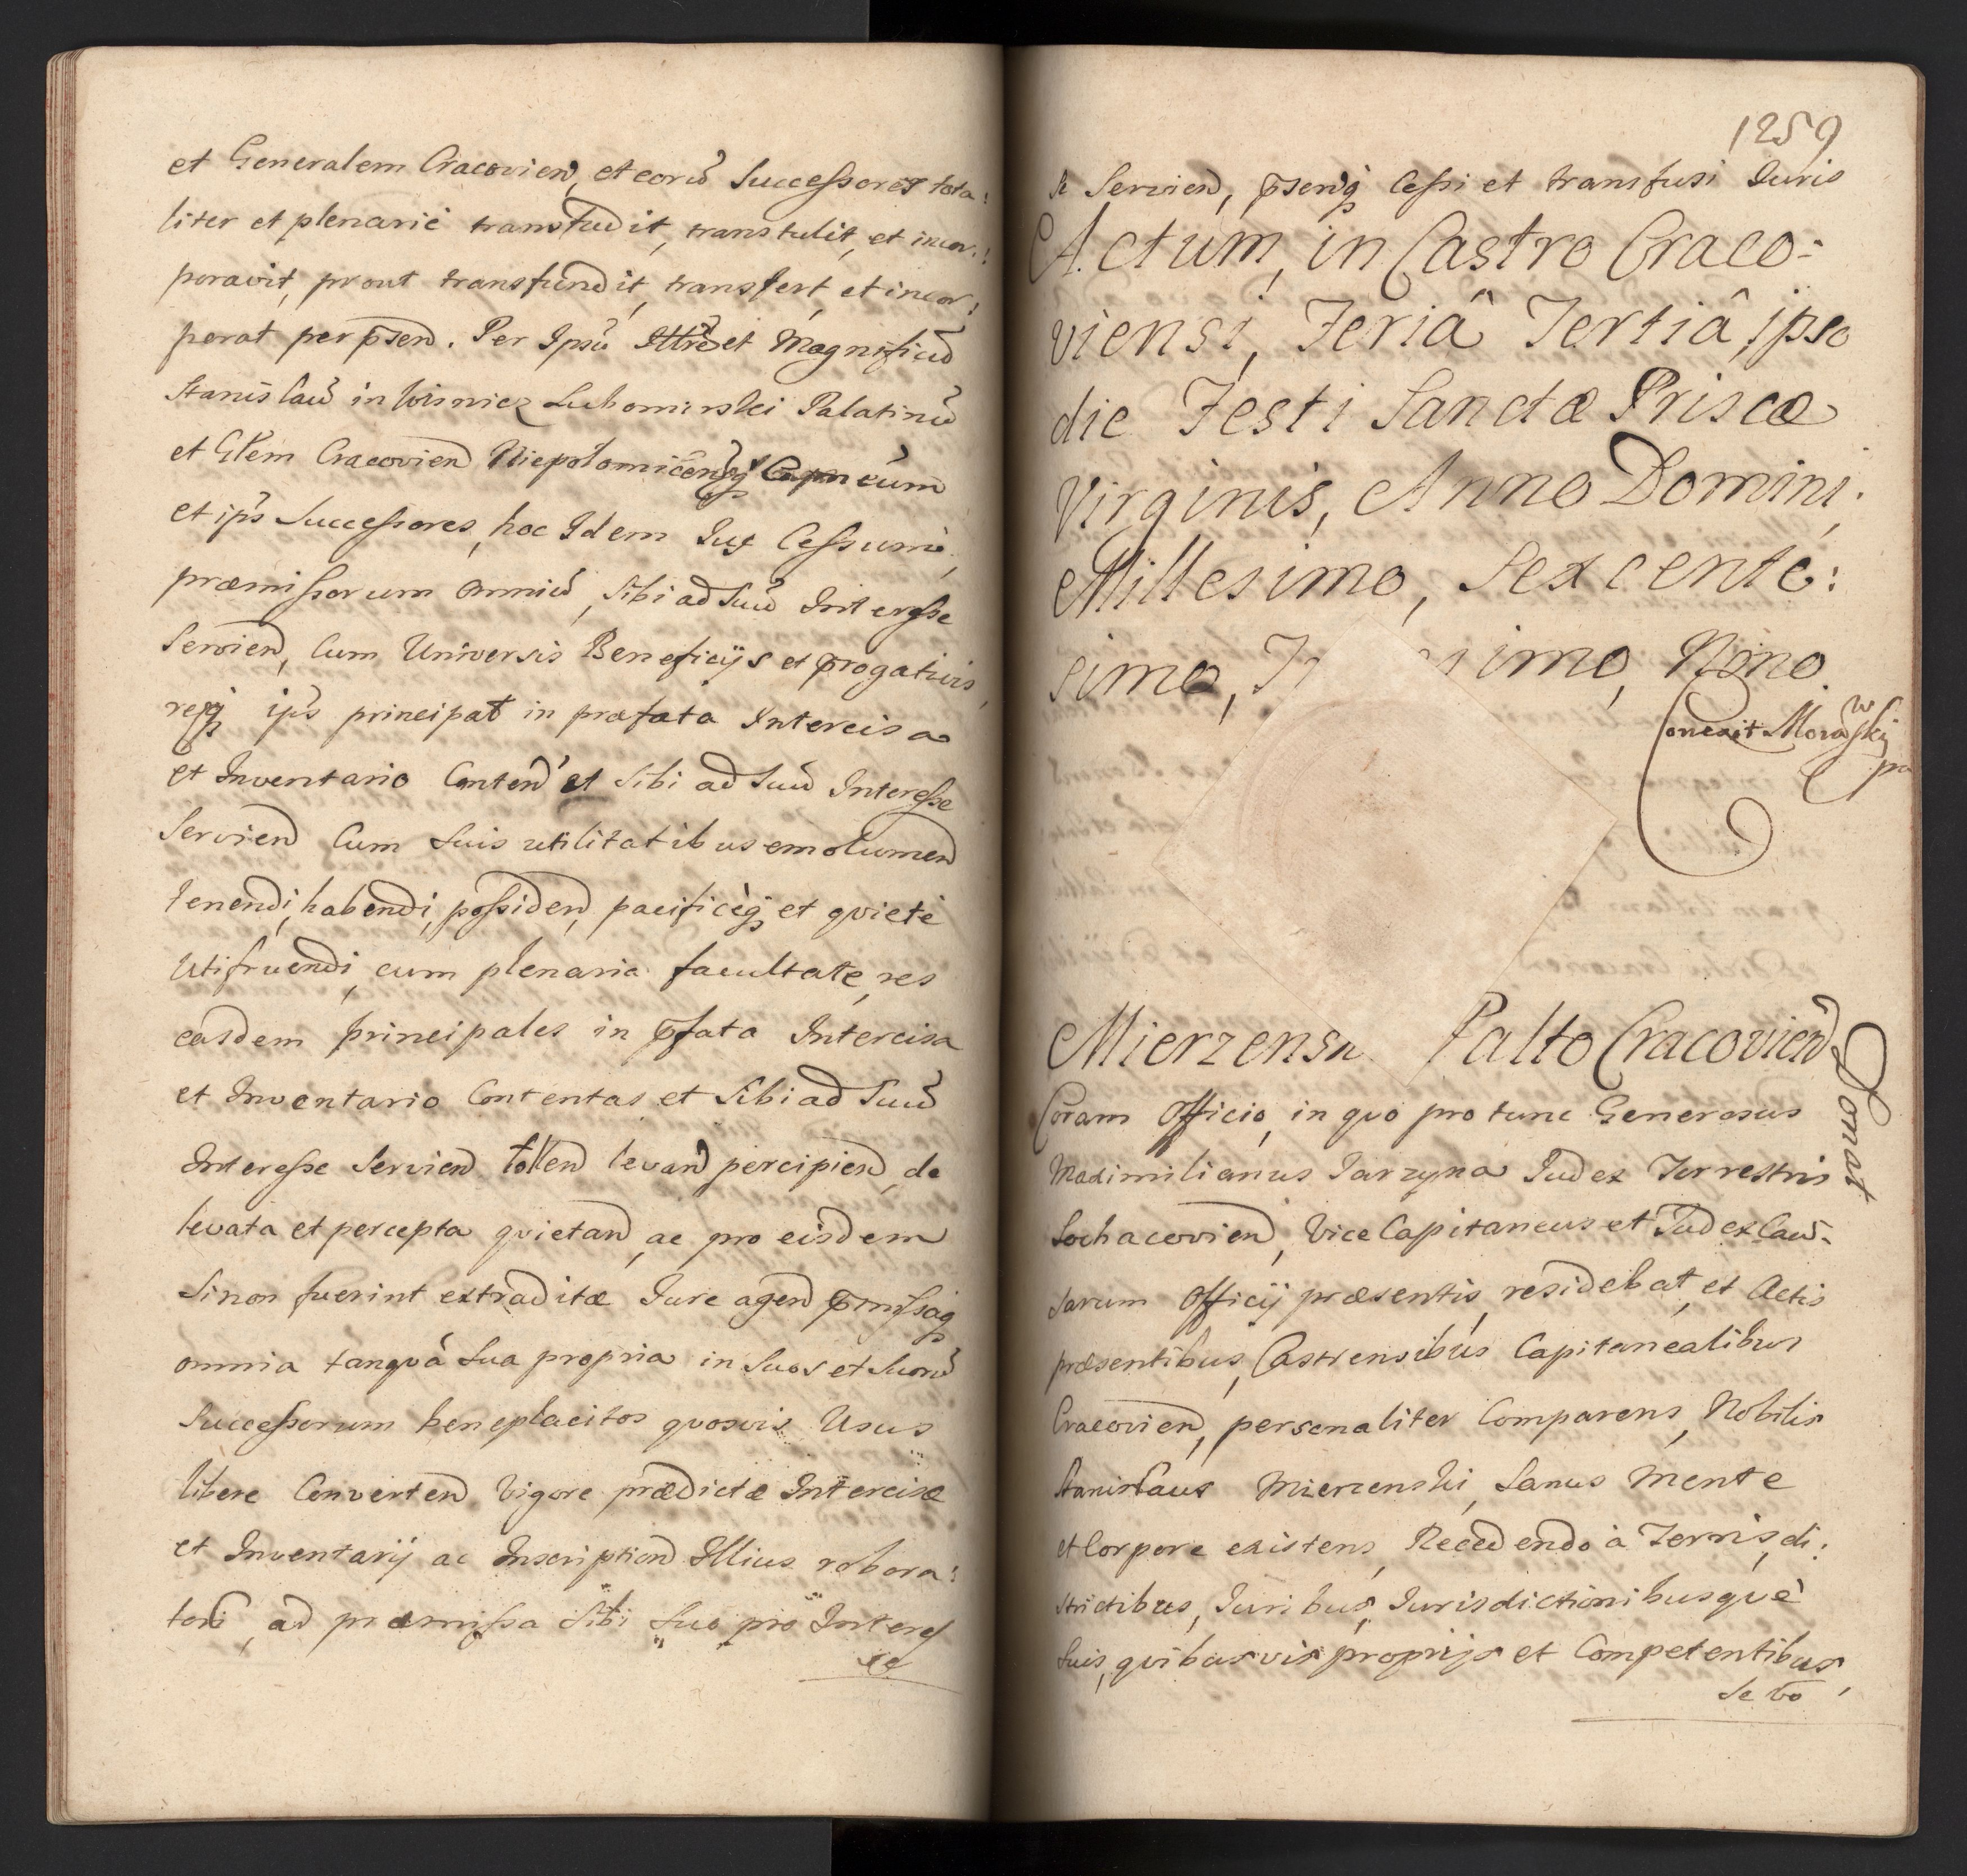 et Generalem Cracovien, et eorũ Successores tota:
liter et plenariè transfudit, transtulit, et incor:
poravit, prout transfundit, transfert, et incor:
porat per p̄sen. Per Ipsũ Illrẽ et Magnificũ
Stanislaũ in Wisnicz Lubomirski Palatinũ
et Glẽm Cracovien Niepolomicenq̃ Capneũm
et ip̃s Successores, hoc Idem Jus Cessumq̃
præmissorum omniũ, Sibi ad Suũ Interesse
Servien, Cum Universis Beneficijs et p̄rogativis,
resq̃ ip̃s principat in præfata Intercisa
et Inventario Conten et Sibi ad Suũ Interesse
Servien Cum Suis utilitatibus emolumen
tenendi, habendi, possiden, pacificèq̃ et qvietè
Utifruendi, cum plenaria facultate, res
easdem principales in p̄fata Intercisa
et Inventario Contentas et Sibi ad Suũ
Interesse Servien tollen levan percipien, de
levata et percepta qvietan, ac pro eisdem
Si non fuerint extraditæ Jure agen p̄missaq̃
omnia tanqvà Sua propria in Suos et Suorũ
Successorum beneplacitos qvosvis Usus
libere Converten Vigore prædictæ Intercisæ
et Inventarij ac Inscription Illius robora:
tori, ad præmissa Sibi Suo pro Interes
se
1259
se Servien, p̄senq̃ Cessi et transfusi Juris
Actum, in Castro Craco-
viensi, Feriâ Tertiâ, ipso
die Festi Sanctæ Priscæ
Virginis, Anno Domini,
Millesimo, Sexcente:
simo, T simo, Nono.
Conexit Morawski
Mierzensk Palto Cracovien
Donat
Coram Officio, in qvo pro tunc Generosus
Maximilianus Jarzyna Judex Terrestris
Sochacovien, Vice Capitaneus et Judex Cau-
sarum Officij præsentis, residebat, et Actis
præsentibus, Castrensibus Capitanealibus
Cracovien, personaliter Comparens, Nobilis
Stanislaus Mierzenski, Sanus Mente
et Corpore existens, Recedendo à Terris, di:
strictibus, Juribus, Jurisdictionibusquè
Suis, qvibusvis proprijs et Competentibus,
se vo